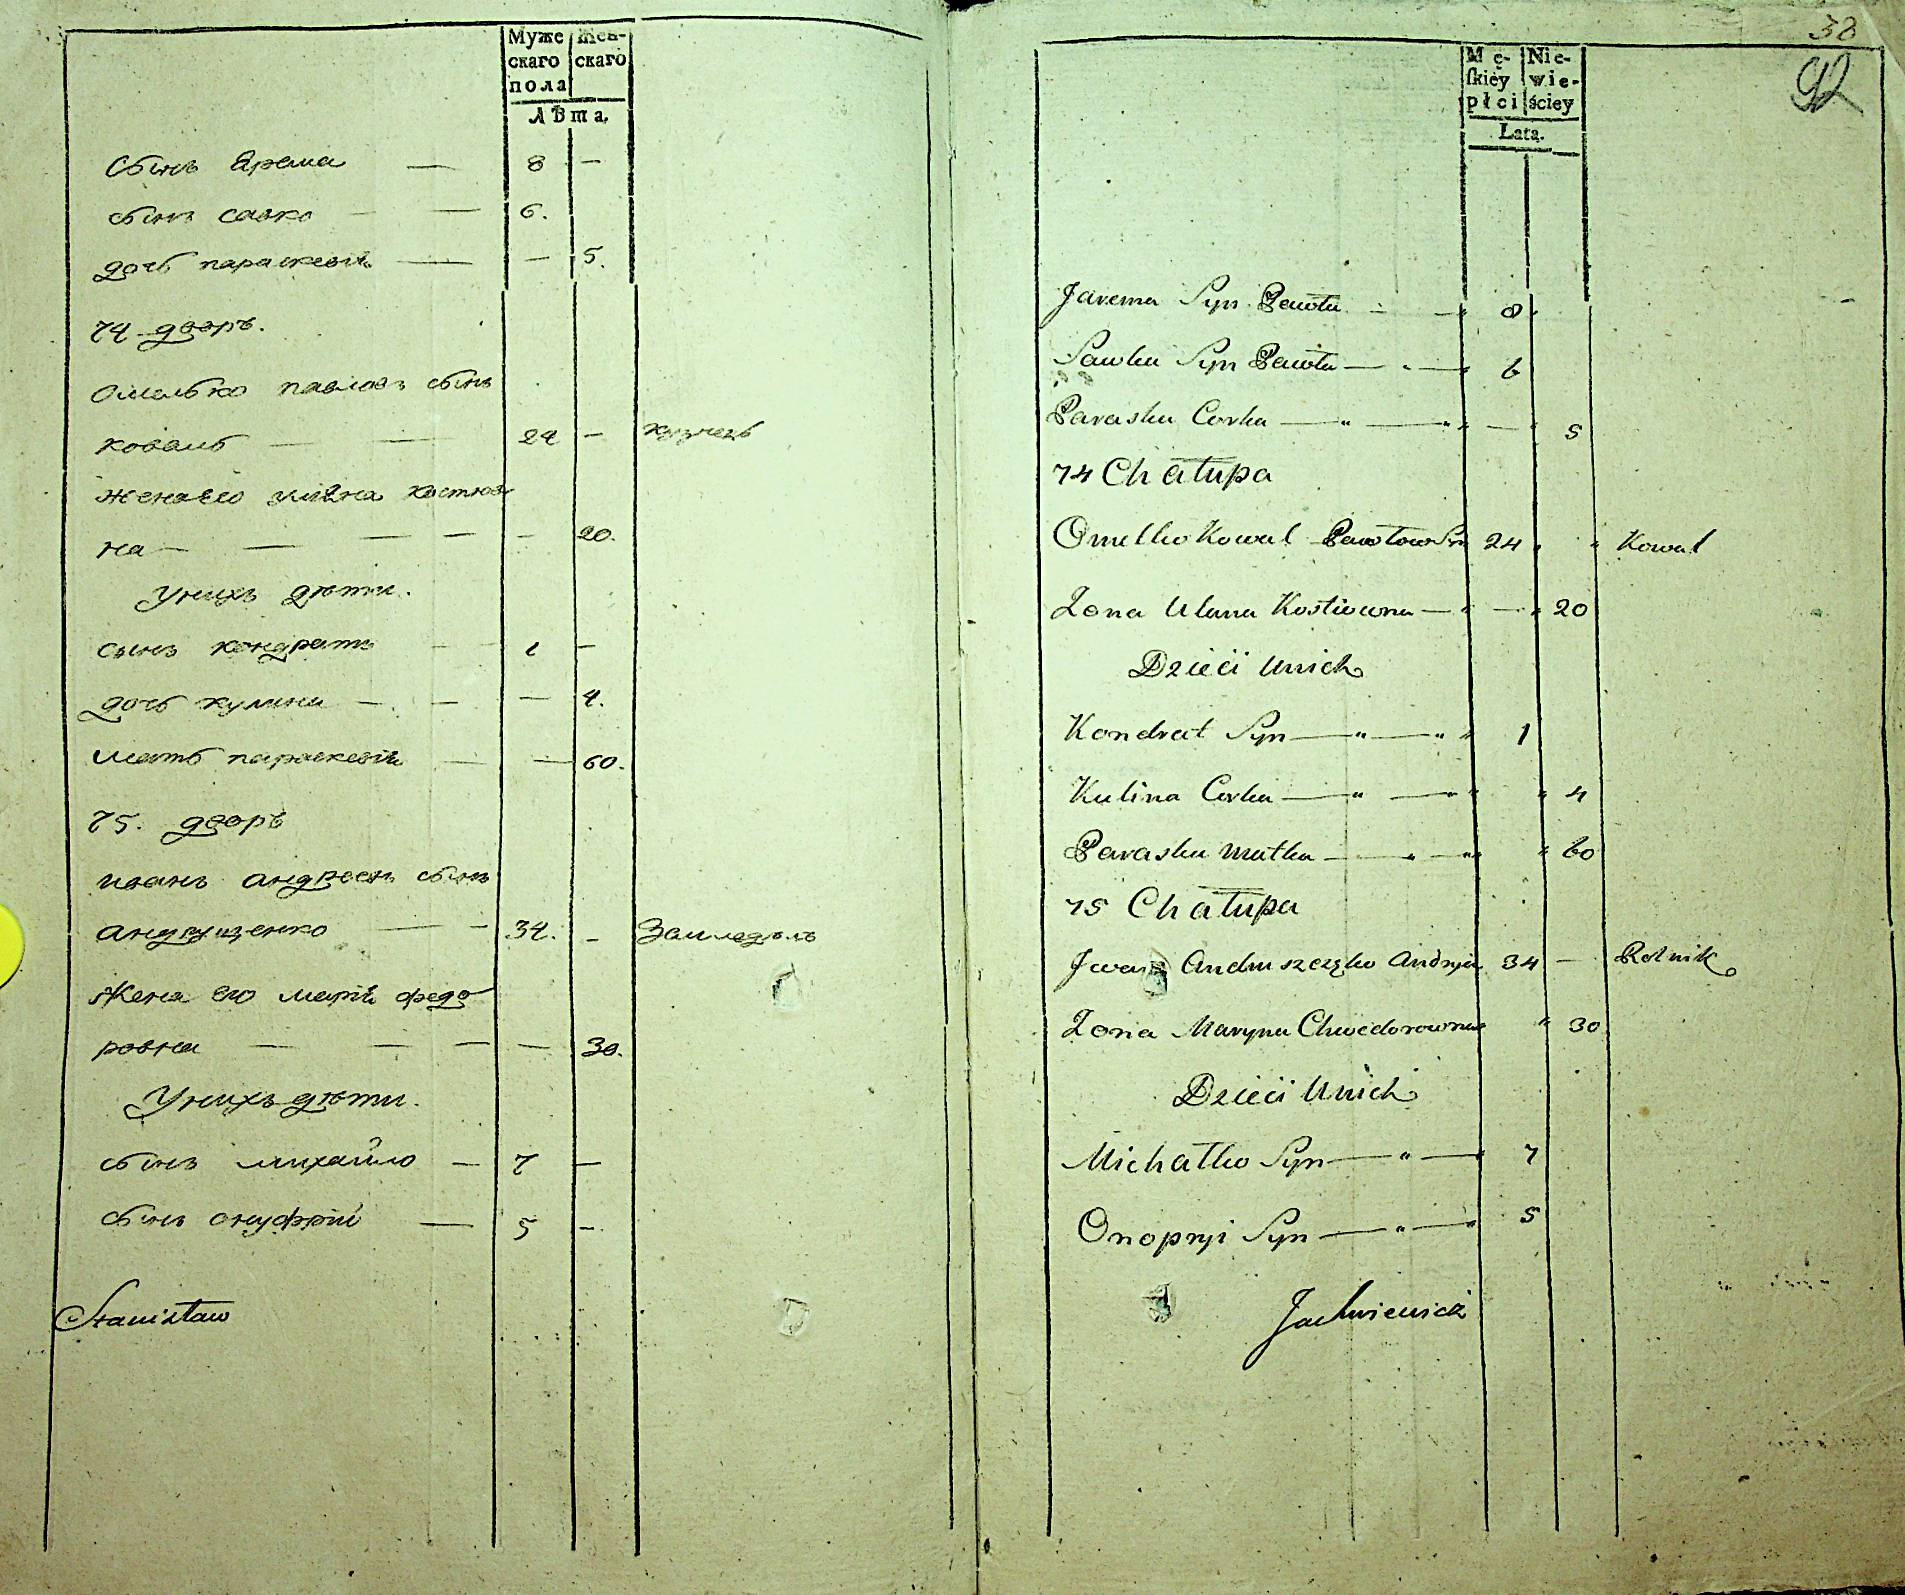 Муже
скаго
пола
Жен-
скаго
Лѣта.
Сынъ Ярема — 8 —
сынъ савко — — 6.
дочь параскевія — — 5.
74 дворъ.
Омелько павловъ сынъ
коваль — — 24 — кузнецъ
жена его уляна костюв
на — — — — — 20.
У нихъ дѣти.
сынъ кондратъ — 1 —
дочь кулина — — — 4.
мать параскевія — — 60.
75. дворъ
иванъ андреевъ сынъ
андрущенко — — 34. — Земледѣлъ
Жена его марія федо
ровна — — — — 30.
У нихъ дѣти.
сынъ михайло — 7 —
сынъ онуфрій — 5 —
Stanisław
38
92
Mę-
skiey
płci
Nie-
wie-
ściey
Lata.
Jarema Syn Pawła — — 8
Sawka Syn Pawła — " — 6
Paraska Corka — " — " — 5
74 Chałupa
Omelko Kowal Pawłow Syn 24 " " Kowal
Zona Ulana Kostiowna — " — " 20
Dzieci u nich
Kondrat Syn — " — " " 1
Kulina Corka — " — " " " 4
Paraska matka — " — " " 60
75 Chałupa
Jwan Andruszczęko Andryia 34 — Rolnik
Zona Maryna Chwedorowna " 30
Dzieci u nich
Michałko Syn — " — 7
Onopryi Syn — " — " 5
Jachniewicz